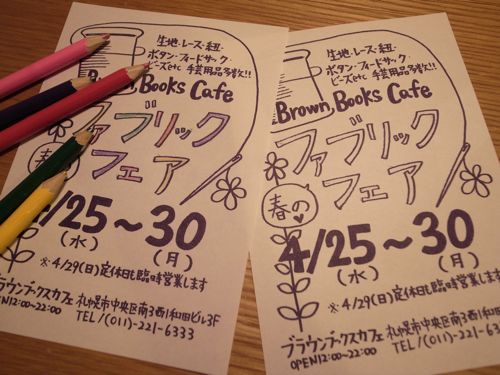 生地・レース・紐・
ボタン・フィードサック・
ビーズetc 手芸用品多数!!
Brown Books Cafe
春の
ファブリック
フェア
4/25〜30
(水) (月)
※4/29(日)定休日も臨時営業します
ブラウンブックスカフェ 札幌市中央区南3西1和田ビル3F
OPEN12:00〜22:00 TEL/(011)-221-6333
生地・レース・紐・
ボタン・フィードサック・
ビーズetc 手芸用品多数!!
Brown Books Cafe
ファブリック
フェア
春の
4/25〜30
(水) (月)
※4/29(日)定休日も臨時営業し
ブラウンブックスカフェ 札幌市中央区南3西1和田
OPEN12:00〜22:00 TEL/(011)-221-6